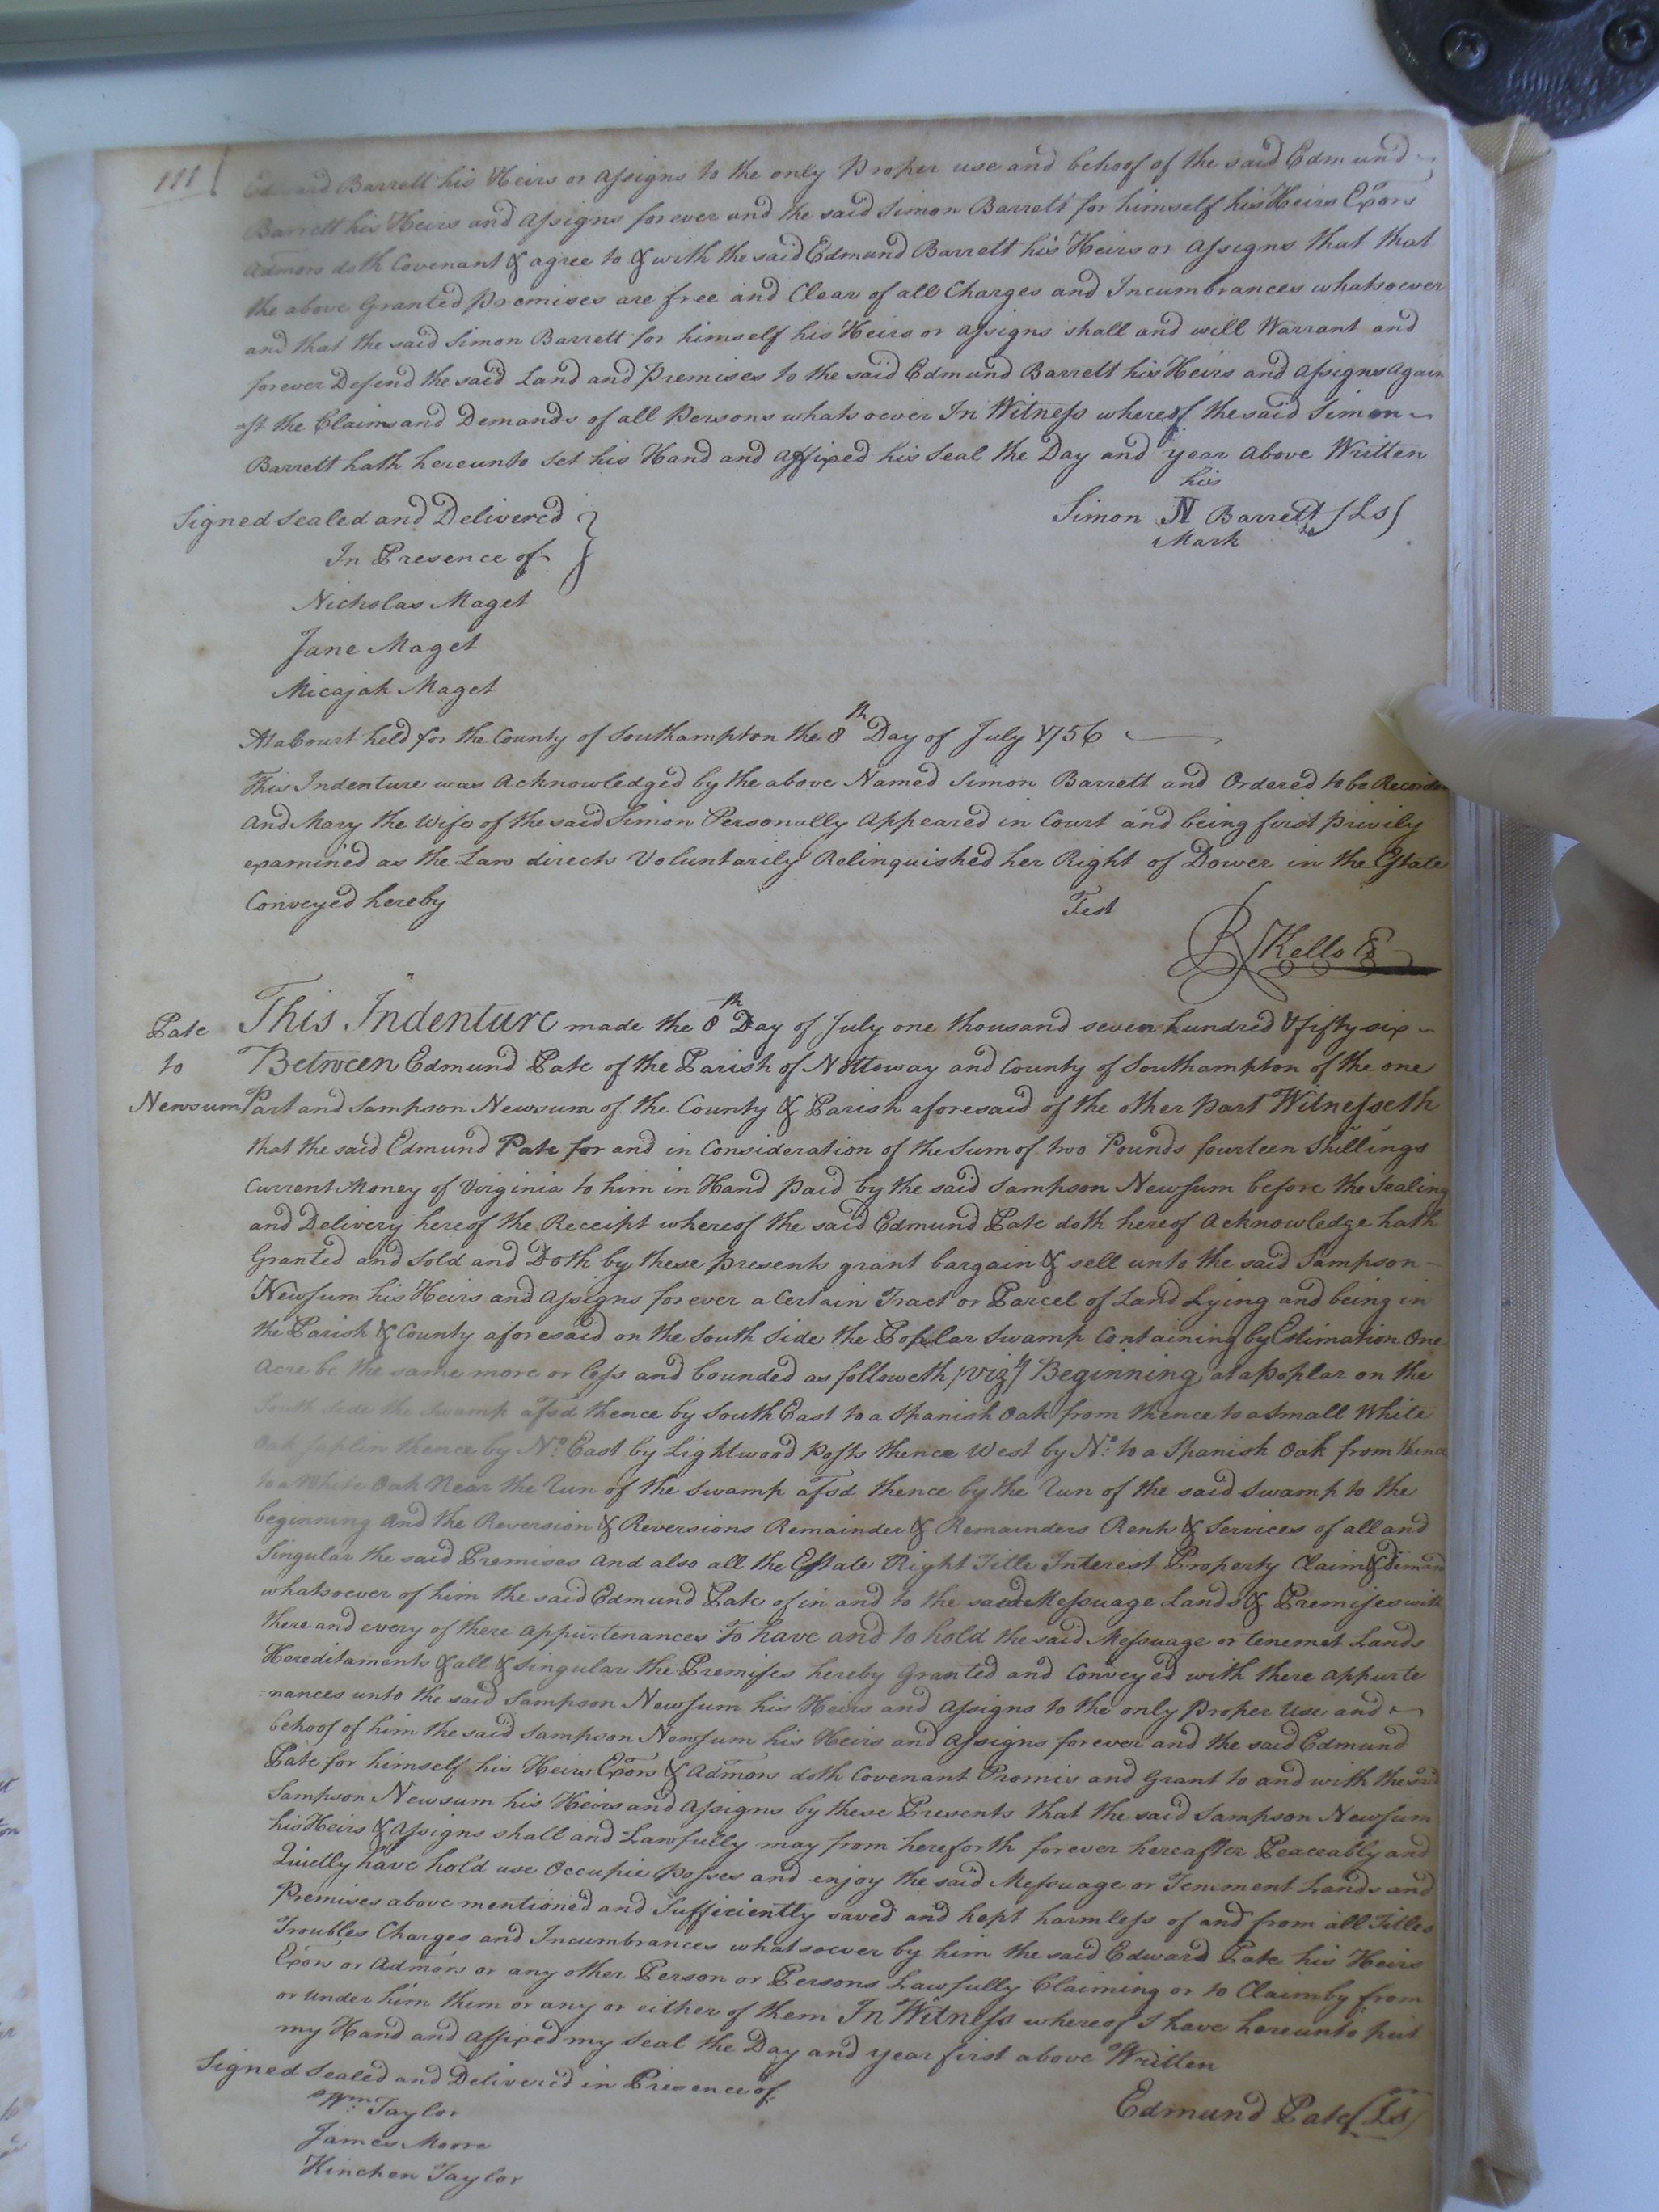 111
Edward Barrett his Heirs or assigns to the only Proper use and behoof of the said Edmund
Barrett his Heirs and assigns forever and the said Simon Barrett for himself his Heirs Exors
Admors doth Covenant & agree to & with the said Edmund Barrett his Heirs or assigns that that
the above Granted Premises are free and Clear of all Charges and Incumbrances whatsoever
and that the said Simon Barrett for himself his Heirs or assigns shall and will Warrant and
forever Defend the said Land and Premises to the said Edmund Barrett his Heirs and assigns again
=st the Claims and Demands of all Persons whatsoever In Witness whereof the said Simon
Barrett hath hereunto set his Hand and affixed his Seal the Day and year above Written
his
Simon N Barrett (LS)
Mark
Signed Sealed and Delivered
In Presence of
Nicholas Maget
Jane Maget
Micajah Maget
At a Court held for the County of Southampton the 8th Day of July 1756
This Indenture was acknowledged by the above Named Simon Barrett and Ordered to be Recorded
And Mary the Wife of the said Simon Personally appeared in Court and being first privily
examined as the Law directs Voluntarily Relinquished her Right of Dower in the Estate
Conveyed hereby
Test
R Kello
Pate
to
Newsum
This Indenture made the 8th Day of July one thousand seven hundred & fifty six
Between Edmund Pate of the Parish of Nottoway and County of Southampton of the one
Part and Sampson Newsum of the County & Parish aforesaid of the other part Witnesseth
that the said Edmund Pate for and in Consideration of the Sum of two Pounds fourteen Shillings
Current Money of Virginia to him in Hand paid by the said Sampson Newsum before the Sealing
and Delivery hereof the Receipt whereof the said Edmund Pate doth hereof acknowledge hath
Granted and Sold and Doth by these presents grant bargain & sell unto the said Sampson
Newsum his Heirs and assigns forever a Certain Tract or Parcel of Land Lying and being in
the Parish & County aforesaid on the South Side the Poplar Swamp Containing by Estimation One
acre be the same more or less and bounded as followeth (vizt) Beginning at a poplar on the
South side the swamp afsd thence by South East to a Spanish Oak from thence to a small White
Oak saplin thence by No. East by Lightwood posts thence West by No. to a Spanish Oak from thence
to a White Oak Near the Run of the swamp afsd thence by the Run of the said swamp to the
beginning and the Reversion & Reversions Remainder & Remainders Rents & Services of all and
Singular the said Premises and also all the Estate Right Title Interest Property Claim & deman
whatsoever of him the said Edmund Pate of in and to the said Messuage Lands & Premises with
there and every of there appurtenances To have and to hold the said Messuage or tenemet Lands
Hereditaments & all & Singular the Premises hereby Granted and Conveyed with there appurte
=nances unto the said Sampson Newsum his Heirs and assigns to the only proper Use and
behoof of him the said Sampson Newsum his Heirs and assigns forever and the said Edmund
Pate for himself his Heirs Exors & Admors doth Covenant Promis and Grant to and with the said
Sampson Newsum his Heirs and assigns by these Presents that the said Sampson Newsum
his Heirs & assigns shall and Lawfully may from hereforth forever hereafter Peaceably and
Quietly have hold use Occupie posses and enjoy the said Messuage or Tenement Lands and
Premises above mentioned and Sufficiently saved and kept harmless of and from all Titles
Troubles Charges and Incumbrances whatsoever by him the said Edward Pate his Heirs
Exors or Admors or any other Person or Persons Lawfully Claiming or to Claim by from
or under him them or any or either of them In Witness whereof I have hereunto put
my Hand and affixed my Seal the Day and year first above Written
Signed Sealed and Delivered in Presence of
Edmund Pate (LS)
Wm Taylor
James Moore
Kinchen Taylor